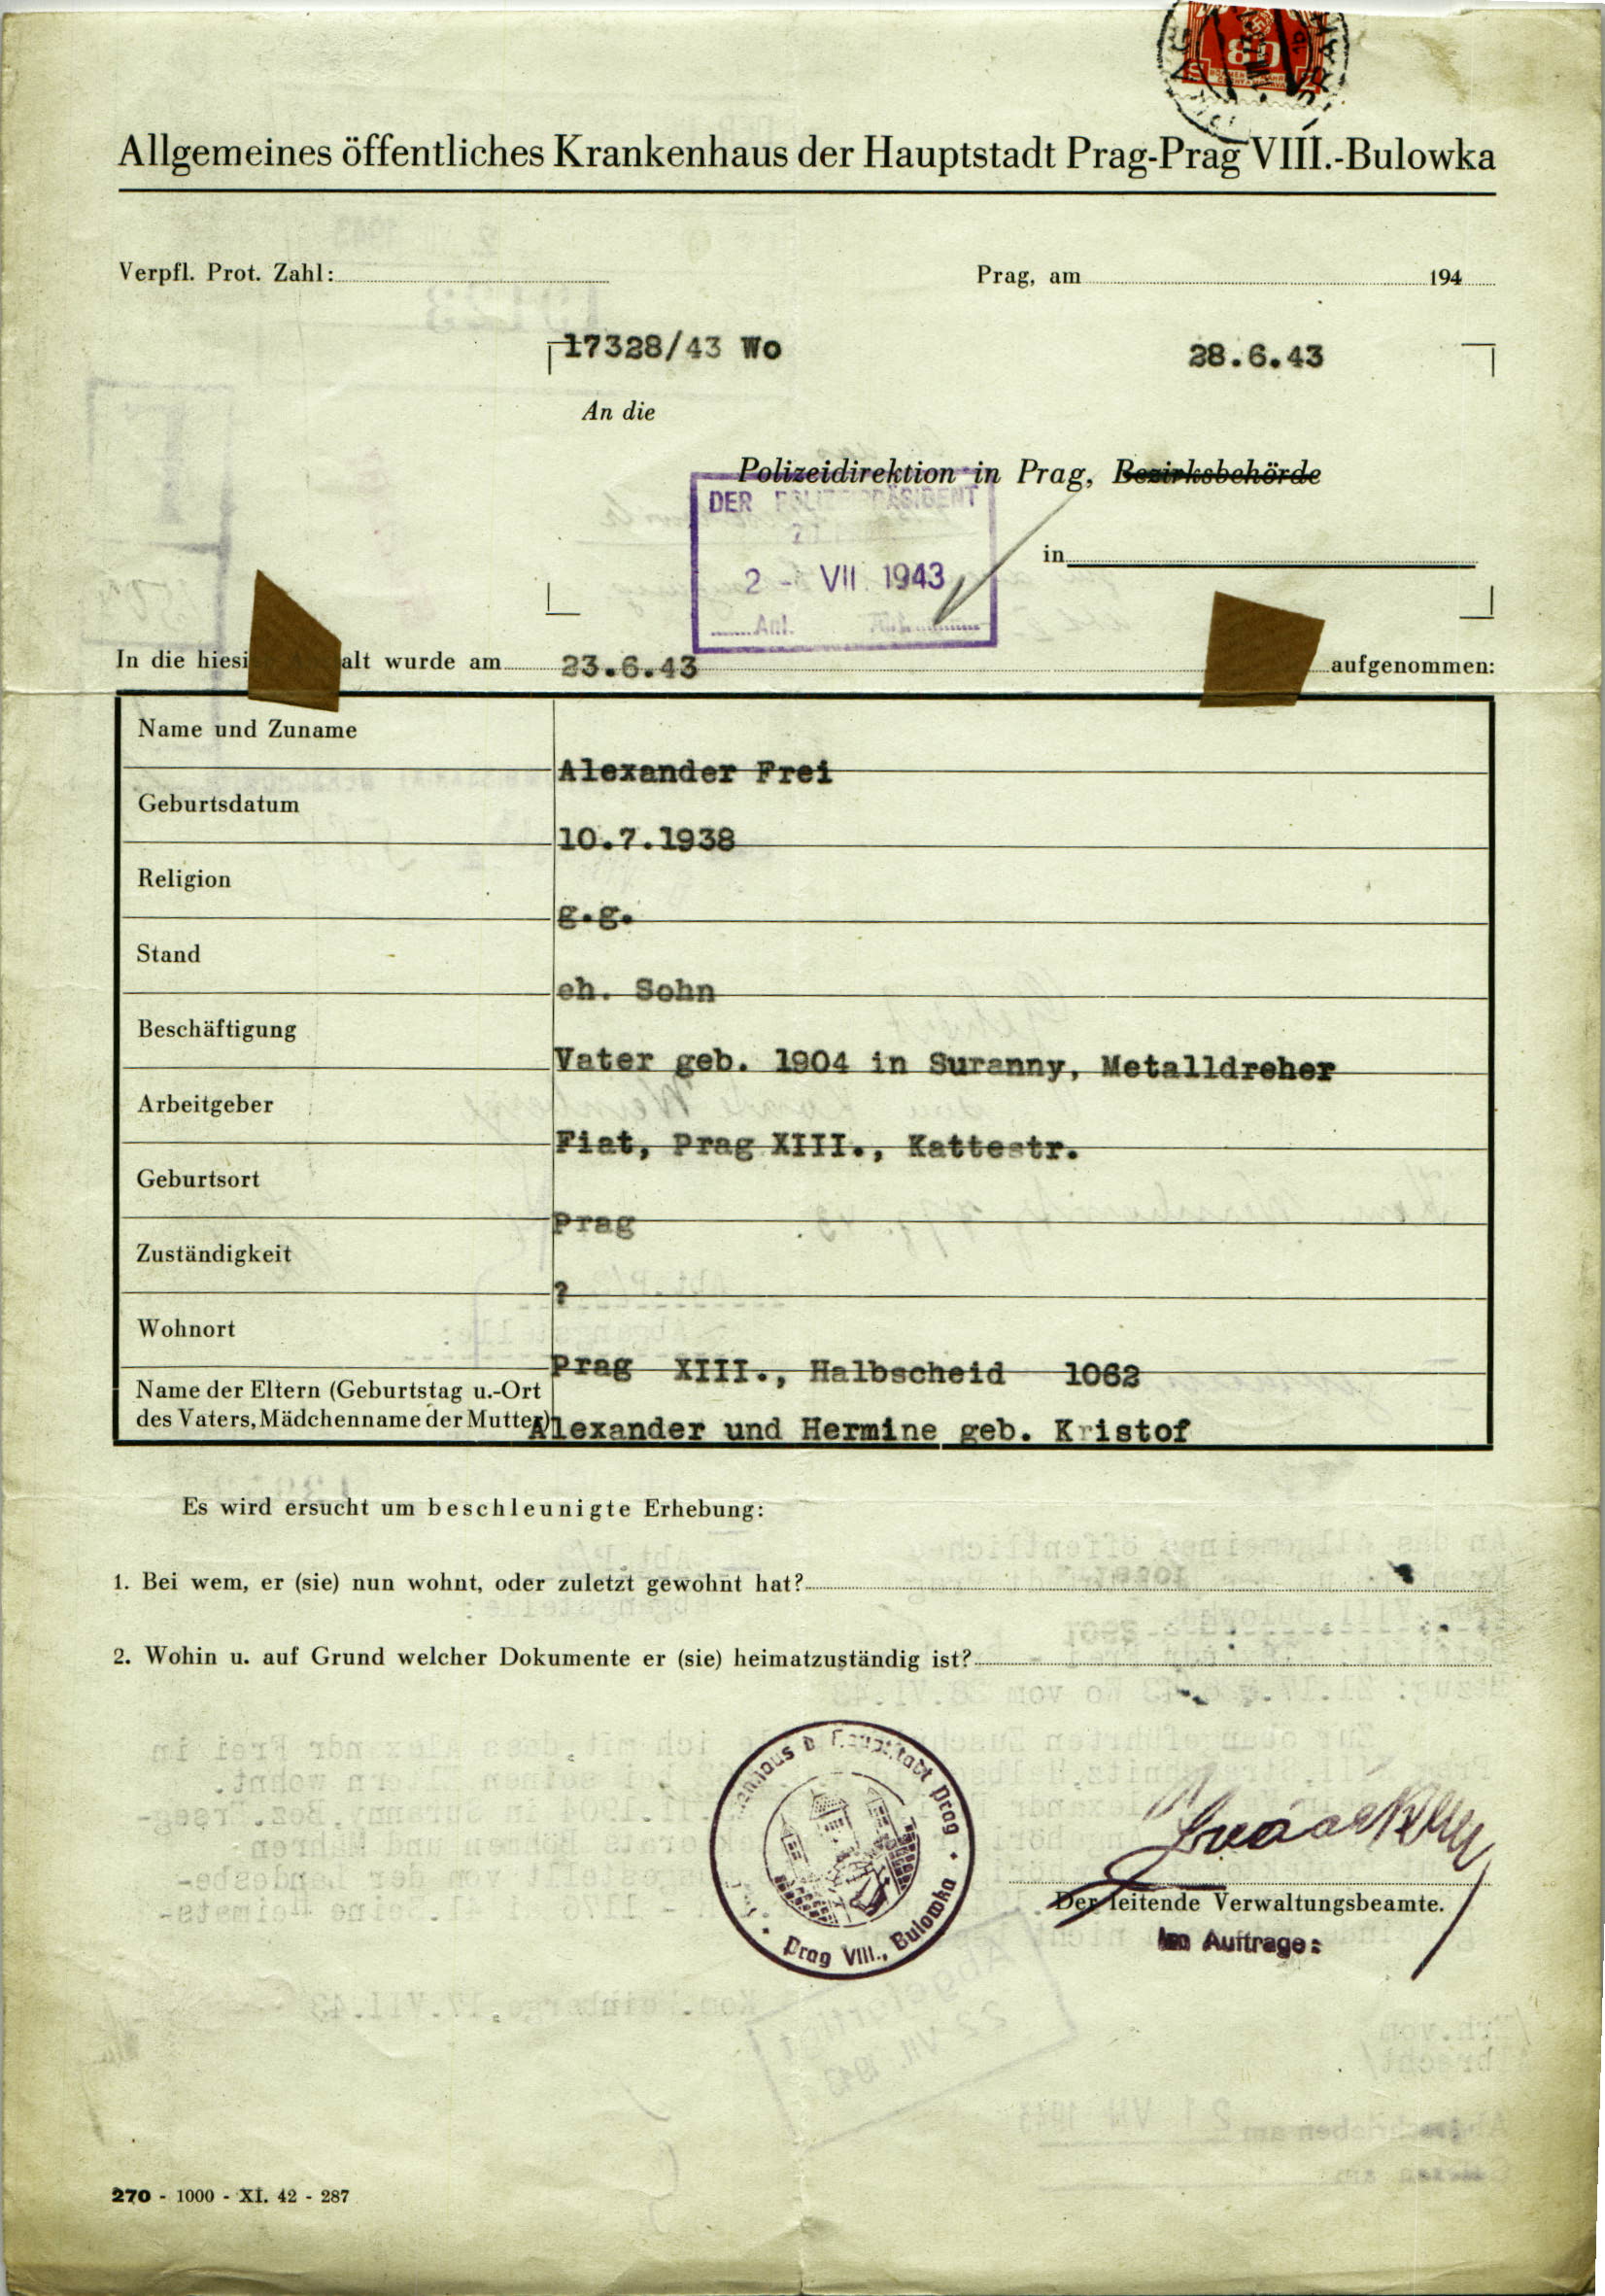 80
Allgemeines öffentliches Krankenhaus der Hauptstadt Prag-Prag VIII.-Bulowka
Verpfl. Prot. Zahl: Prag, am 194
17328/43 Wo 28.6.43
An die
Polizeidirektion in Prag, Bezirksbehörde
DER POLIZEIPRÄSIDENT
in
2 - VII. 1943
Anl.
In die hiesi alt wurde am 23.6.43 aufgenommen:
Name und Zuname
Alexander Frei
Geburtsdatum
10.7.1938
Religion
g.g.
Stand
eh. Sohn
Beschäftigung
Vater geb. 1904 in Suranny, Metalldreher
Arbeitgeber
Fiat, Prag XIII., Kattestr.
Geburtsort
Prag
Zuständigkeit
?
Wohnort
Prag XIII., Halbscheid 1062
Name der Eltern (Geburtstag u.-Ort
des Vaters, Mädchenname der Mutter)
Alexander und Hermine geb. Kristof
Es wird ersucht um beschleunigte Erhebung:
1. Bei wem, er (sie) nun wohnt, oder zuletzt gewohnt hat?
2. Wohin u. auf Grund welcher Dokumente er (sie) heimatzuständig ist?
enhaus d. Hauptstadt Prag
Prag VIII., Bulowka
Der leitende Verwaltungsbeamte.
Im Auftrage:
270 - 1000 - XI. 42 - 287